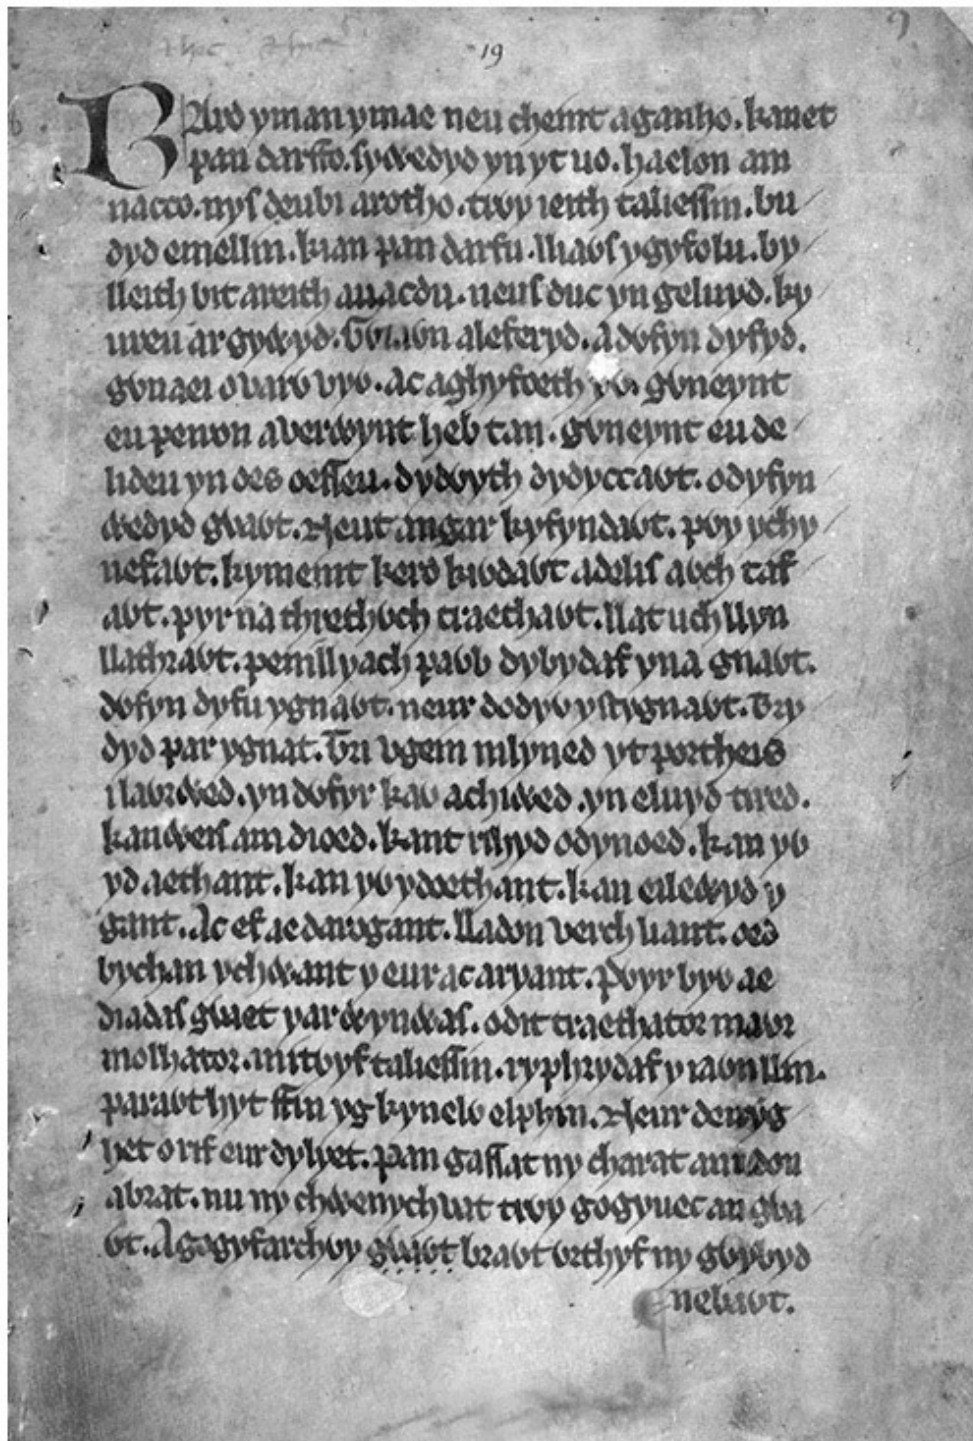 19
BArd yman ymae neu cheint aganho. kanet
pan darffo. sywedyd yn yt uo. haelon am
nacco. nys deubi arotho. trỽy ieith taliessin. bu
dyd emellin. kian pan darfu. lliaỽs ygyfolu. by
lleith bit areith auacdu. neus duc yn geluyd. ky
ureu argywyd. Gỽiaỽn aleferyd. adỽfyn dyfyd.
gỽnaei o varỽ vyỽ. ac aghyfoeth yỽ. gỽneynt
eu peiron aberwynt heb tan. gỽneynt eu de
lideu yn oes oesseu. dydỽyth dydyccaỽt. odyfyn
wedyd gỽaỽt. Neut angar kyfyndaỽt. pỽy ychy
nefaỽt. kymeint kerd kiỽdaỽt adelis aỽch taf
aỽt. pyr na threthỽch traethaỽt. llat uch llyn
llathraỽt. penillyach paỽb dybydaf yna gnaỽt.
dỽfyn dyfu ygnaỽt. neur dodyỽ ystygnaỽt. Try
dyd par ygnat. Tri vgein mlyned yt portheis
i laỽrwed. yn dỽfyr kaỽ achiwed. yn eluyd tired.
kanweis am dioed. kant rihyd odynoed. kan yỽ
yd aethant. kan yỽ ydoethant. kan eilewyd y
gant. Ac ef ae darogant. lladon verch liant. oed
bychan ychwant y eur ac aryant. Pỽy'r byỽ ae
diadas gỽaet yar wynwas. odit traethattor maỽr
molhator. mitỽyf taliessin. ryphrydaf y iaỽn llin.
paraỽt hyt ffin yg kynelỽ elphin. Neur deiryg
het o rif eur dylyet. pan gassat ny charat anudon
abrat. nu ny chwenychvat trỽy gogyuec an gỽa
ỽt. Agogyfarchỽy gỽaỽt braỽt ỽrthyf ny gỽybyd
nebaỽt.